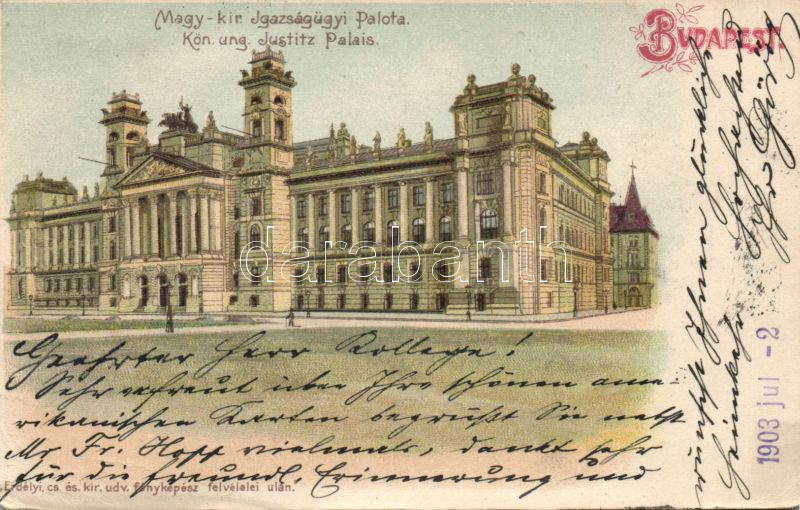 Magy-kir. Igazságügyi Palota.
Kön. ung. Justitz Palais.
BUDAPEST.
darabanth
Geehrter Herr Kollege!
Sehr erfreut über Ihre schönen ame-
rikanischen Karten begrüßt Sie nebst
Mr Fr. Hopp vielmals, dankt sehr
für die freundl. Erinnerung und
wünscht Ihnen glückliche
Heimkehr
Ihr
1903 jul - 2
Erdélyi, cs. és. kir. udv. fényképész felvételei után.